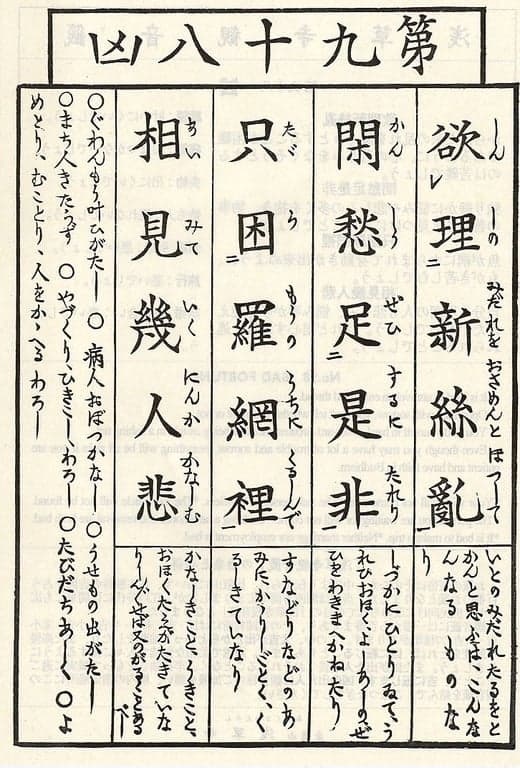 第九十八凶
欲理新絲亂
しんしの みだれを おさめんとほつして
いとのみだれたるをと
かんと思ふは、しんな
んなるものな
り
閑愁足是非
かんしう ぜひするに たれり
れひおほく、
ひわきまへかねたり
只困羅網裡
たゞ らもうの うちに くるしんで
すなどりなどのあ
みに、かゝりしごとく、く
るしきていなり
相見幾人悲
あいみて いくにんか かなしむ
かなしきこと、うきこと、
おほく、たえがたきていな
り、
○ぐわんもうすひがたし ○ 病人おぼつかなし ○うせもの出がたし
○まち人きたらず ○ やづくり、ひきこし、わろし ○たびだちあしく ○よ
めとり、むことり、人をかゝへる わろし